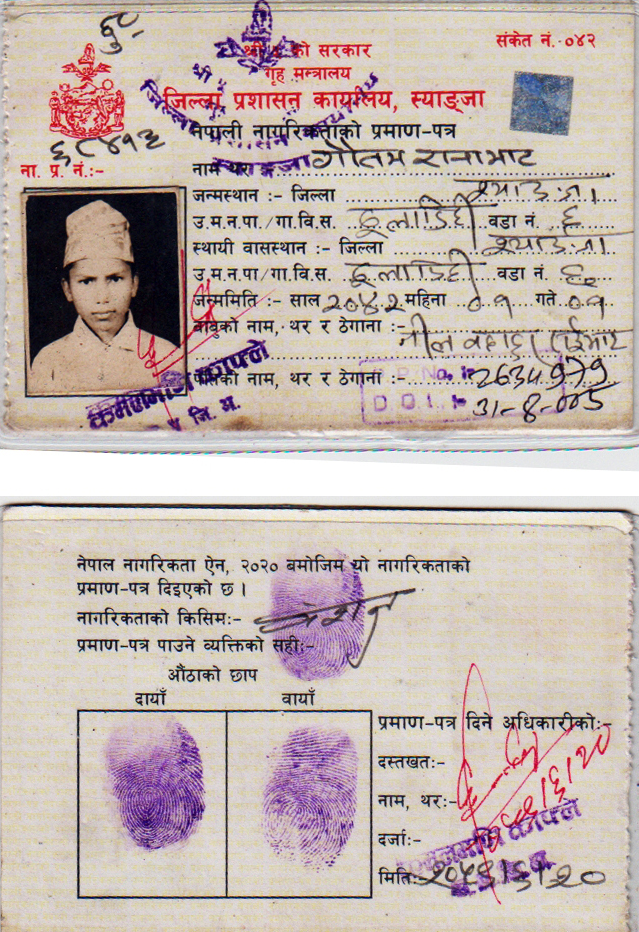 श्री ५ को सरकार
संकेत नं. ०४२
गृह मन्त्रालय
जिल्ला प्रशासन कार्यालय, स्याङ्जा
नेपाली नागरिकताको प्रमाण-पत्र
ना. प्र. नं.:-
नाम थर: गौतम रानाभाट
जन्मस्थान :- जिल्ला स्याङजा
उ.म.न.पा./गा.वि.स. वडा नं. ६
स्थायी वासस्थान :- जिल्ला स्याङजा
उ.म.न.पा./गा.वि.स. वडा नं.
जन्ममिति :- साल २०४२ महिना ०१ गते ०१
बाबुको नाम, थर र ठेगाना :-
पतिको नाम, थर र ठेगाना :-
P.P. No. :- 2634979
D.O.I. :- 31-8-005
नेपाल नागरिकता ऐन, २०२० बमोजिम यो नागरिकताको
प्रमाण-पत्र दिइएको छ।
नागरिकताको किसिम:- वंशज
प्रमाण-पत्र पाउने व्यक्तिको सही:-
औंठाको छाप
दायाँ वायाँ
प्रमाण-पत्र दिने अधिकारीको:-
दस्तखत:-
नाम, थर:-
दर्जा:-
मिति:-